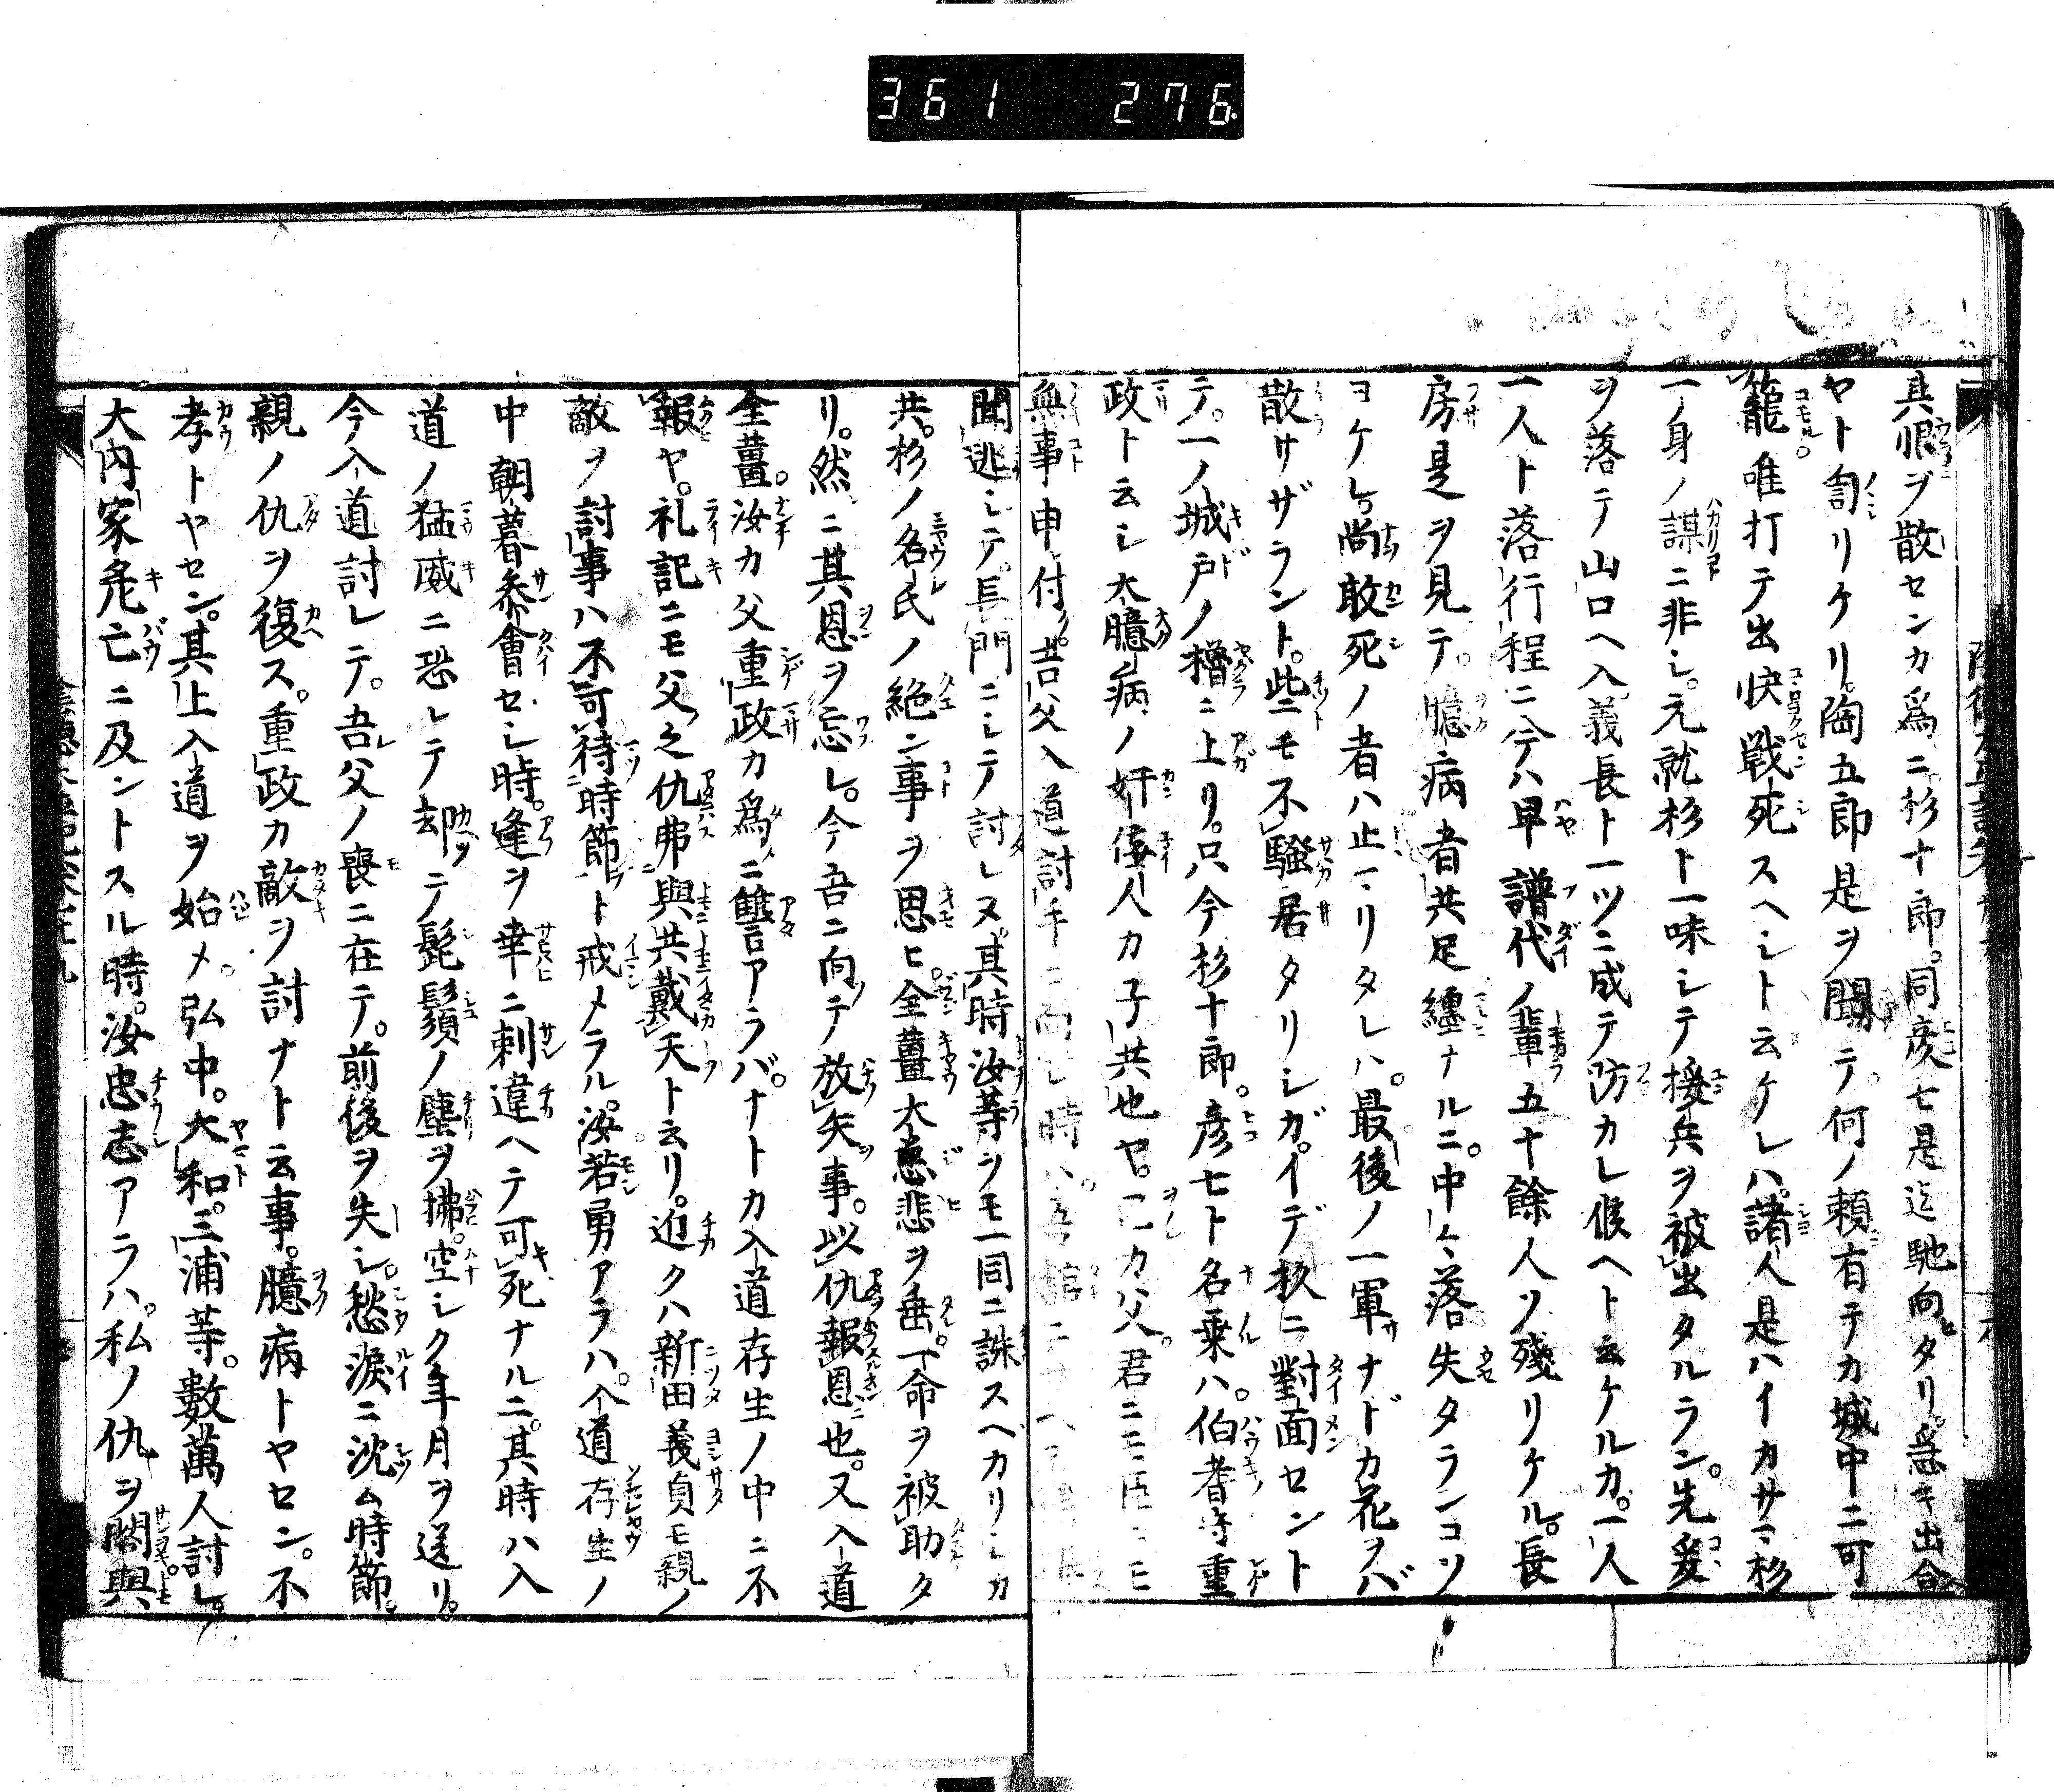 361 276
其恨ヲ散センカ爲ニ杉十郎。同彦七是迄馳向タリ。急キ出合
ヤト訇リケリ。陶五郎是ヲ聞テ。何ノ頼有テカ城中ニ可
籠唯打テ出快戦死スヘシト云ケレハ。諸人是ハイカサマ杉
一ノ身ノ謀ニ非シ。元就杉ト一味シテ援兵ヲ被出タルラン。先爰
ヲ落テ山口ヘ入。義長ト一ツニ成テ防カレ候ヘト云ケルカ。一人
一人ト落行程ニ今ハ早譜代ノ輩五十餘人ソ殘リケル。長
房是ヲ見テ。臆病者共足纏ナルニ。中々落失タランコソ
ヨケレ。尚敢死ノ者ハ止マリタレハ。最後ノ一軍ナドカ花ヲバ
散サザラント。些モ不騷居タリシガ。イデ杉ニ對面セント
テ。一ノ城戸ノ櫓ニ上リ。只今杉十郎。彦七ト名乗ハ。伯耆守重
政ト云シ大臆病ノ奸佞人カ子共也ヤ。 カ父。君ニモ臣ニモ
無事申付 。吾父入道討手ニ向シ時ハ。
聞逃シテ。長門ニシテ討レヌ。其時汝等ヲモ一同ニ誅スベカリシカ
共。杉ノ名氏ノ絶ン事ヲ思ヒ。全薑大慈悲ヲ垂。一命ヲ被助タ
リ。然ニ其恩ヲ忘レ。今吾ニ向テ放矢事。以仇報恩也。又入道
全薑。汝カ父重政カ爲ニ讎アラバ。ナトカ入道存生ノ中ニ不
報ヤ。礼記ニモ父之仇弗與共戴天ト云リ。近クハ新田義貞モ親ノ
敵ヲ討事ハ不可待時節ト戒メラル。汝若勇アラハ。入道存生ノ
中朝暮參會セシ時。逢ヲ幸ニ刺違ヘテ可死ナルニ。其時ハ入
道ノ猛威ニ恐レテ却テ髭鬚ノ塵ヲ拂。空シク年月ヲ送リ。
今入道討レテ。吾父ノ喪ニ在テ。前後ヲ失シ。愁涙ニ沈ム時節。
親ノ仇ヲ復ス。重政カ敵ヲ討ナト云事。臆病トヤセン。不
孝トヤセン。其上入道ヲ始メ。弘中。大和。三浦等。數萬人討レ。
大内家危亡ニ及ントスル時。汝忠志アラハ。私ノ仇ヲ閣與